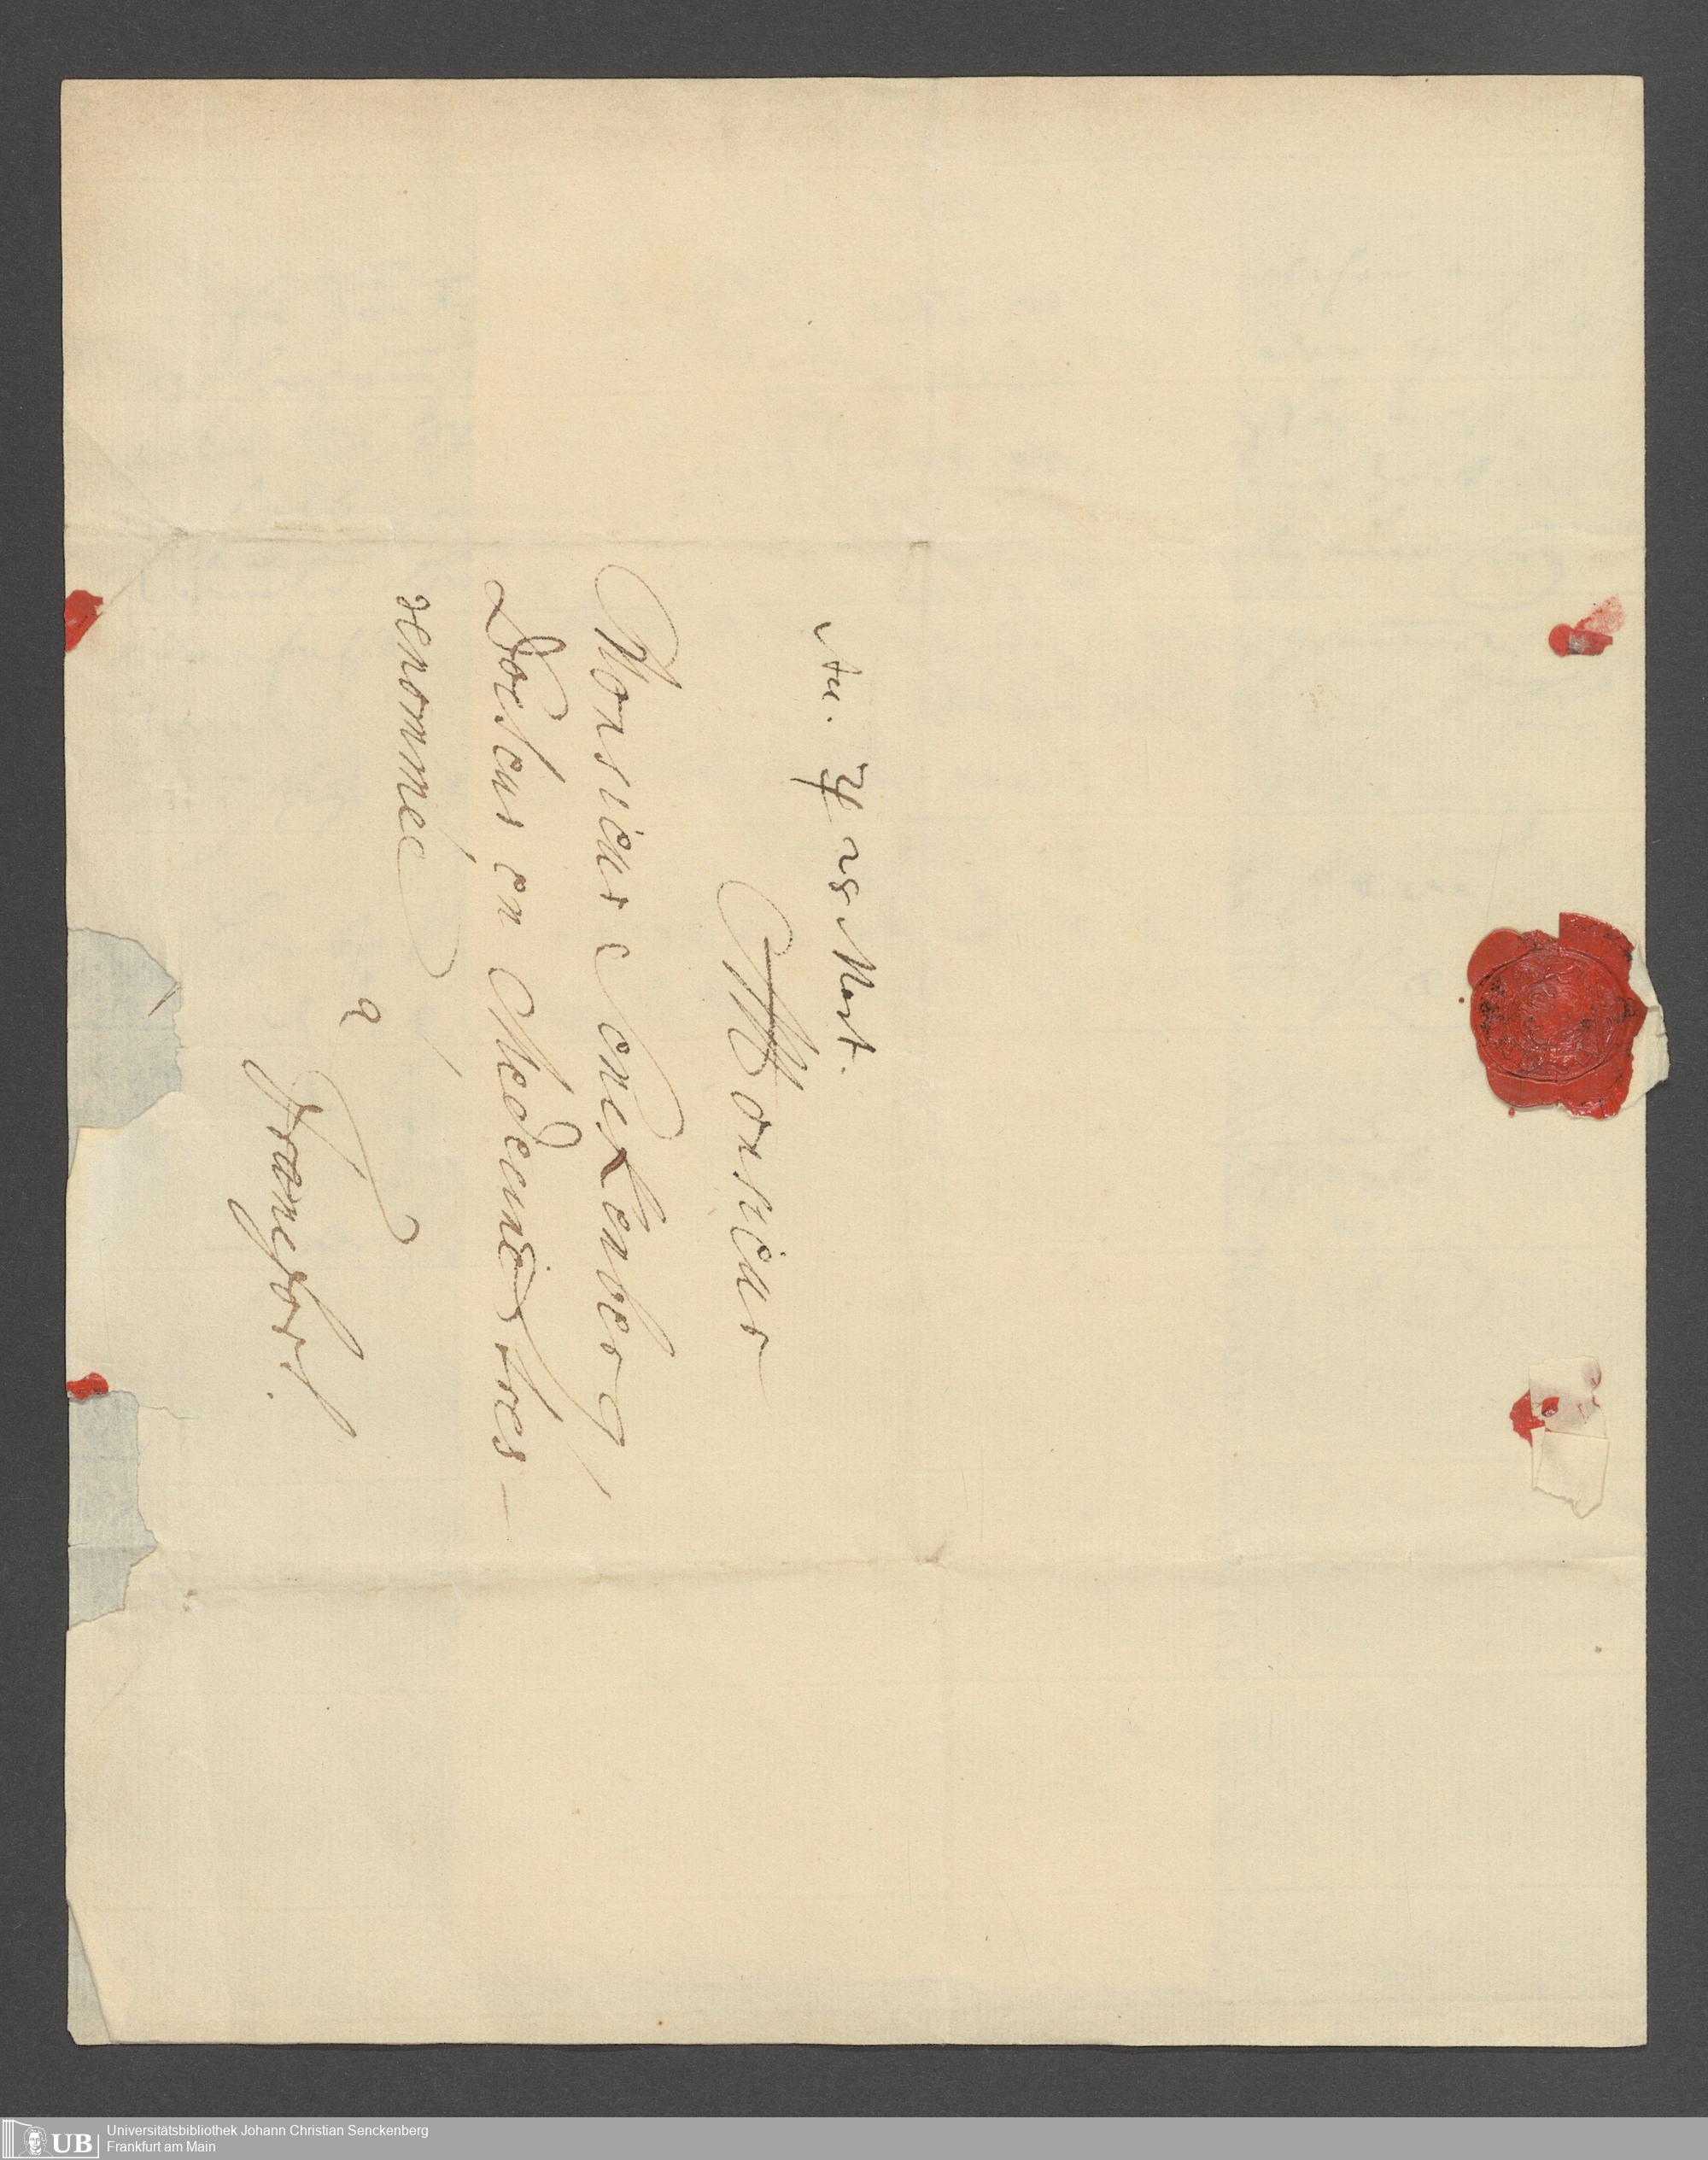 Acc. ♃ 28 Mart.
Monsieur
Monsieur Senckenberg
Docteur en Medecine tres
renommée
a
Francfort.
Universitätsbibliothek Johann Christian Senckenberg
Frankfurt am Main
UB